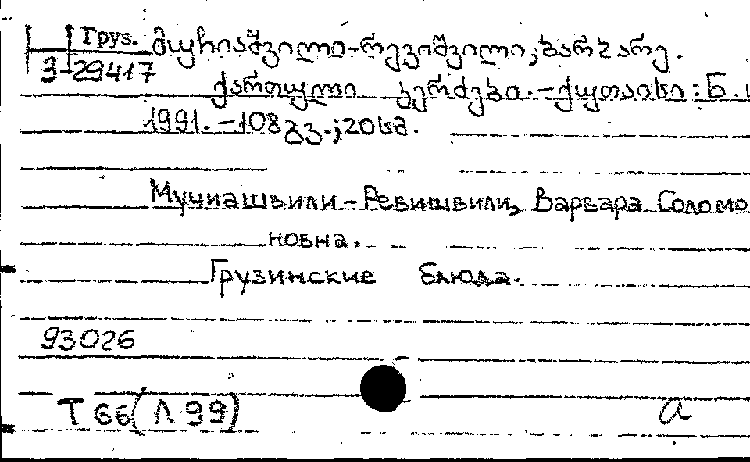 Груз. მუჩიაშვილი-რევიშვილი, ბარბარე.
3-29417
ქართული კერძები.-ქუთაისი: Б.и
1991.-108გვ.; 20სმ.
Мучиашвили-Ревишвили, Варвара Соломо
новна.
Грузинские блюда.
93026
Т 66(Л 99) а